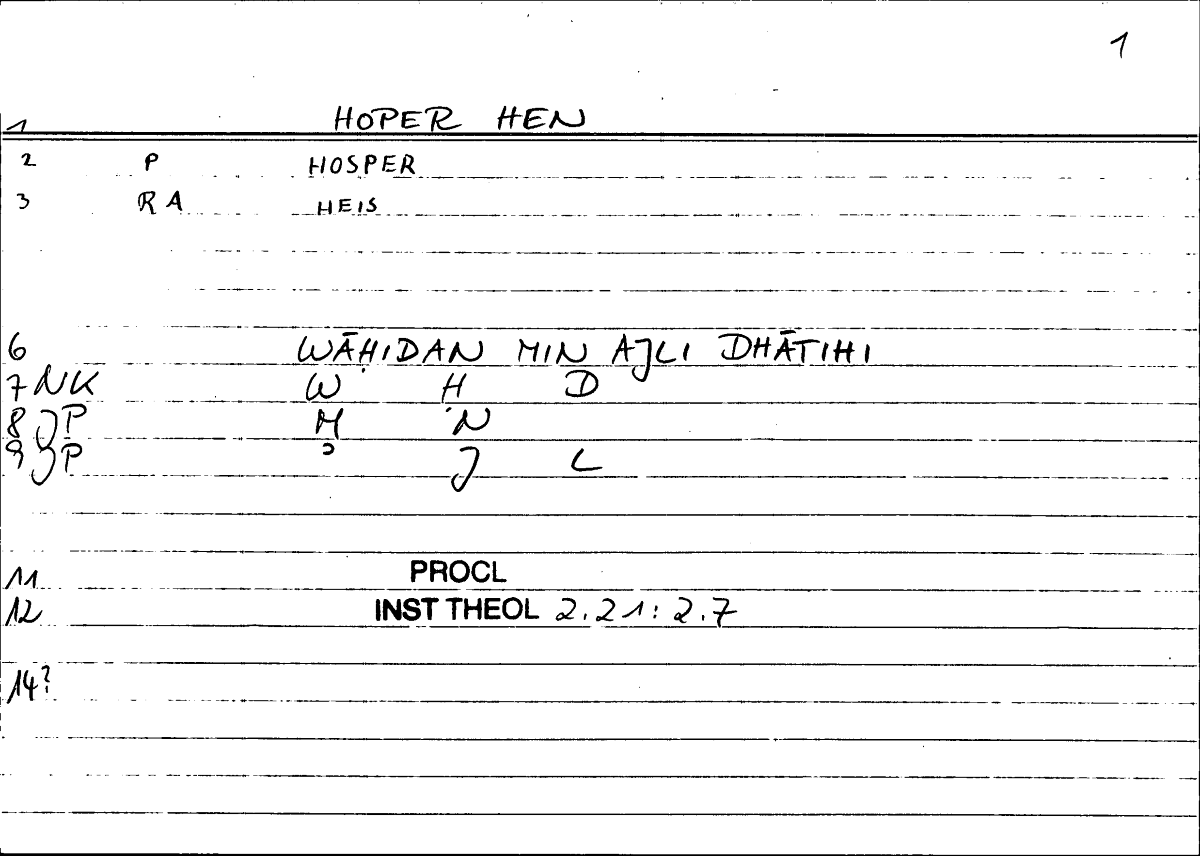 1
1 HOPER HEN
2 P HOSPER
3 RA HEIS
6 WĀḤIDAN MIN AJLI DHĀTIHI
7 NK W Ḥ D
8 JP M N
9 JP ʾ J L
11 PROCL
12 INST THEOL 2.21: 2.7
14?